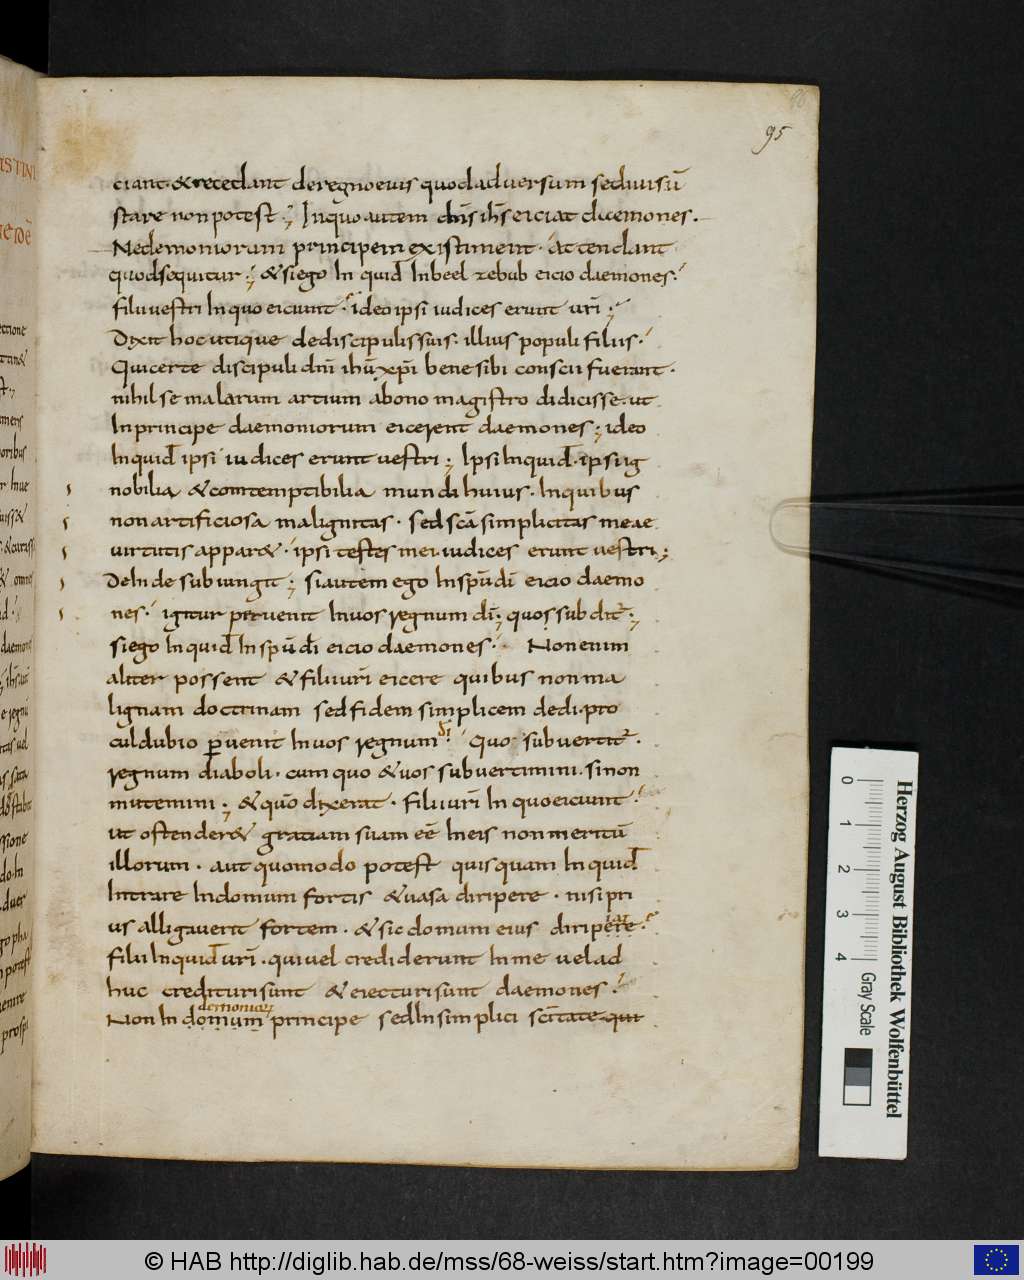 95
ciant · & recedant de regno eius quod aduersum se diuisū
stare non potest ; In quo autem dn̄s ih̄s eiciat daemones .
Ne demoniorum principem existiment · attendant
quod sequitur ; & si ego In quid In beel zebub eicio daemones ·
filii uestri In quo eiciunt · ideo ipsi iudices erunt ur̄i ;
Dixit hoc utique de discipulis suis · illius populi filiis ·
Qui certe discipuli dn̄i ihū xp̄i bene sibi conscii fuerant ·
nihil se malarum artium a bono magistro didicisse · ut
In principe daemoniorum eicerent daemones ; ideo
Inquid ipsi iudices erunt uestri ; Ipsi Inquid · ipsi ig
nobilia & comtemptibilia mundi huius · In quibus
non artificiosa malignitas · sed scā simplicitas meae
uirtutis appar& · ipsi testes mei iudices erunt uestri ;
De In de subiungit ; si autem ego In spū dī eicio daemo
nes · igitur peruenit In uos regnum dī ; quos subdit ;
si ego Inquid In spū dī eicio daemones · Non enim
aliter possent & filii ur̄i eicere quibus non ma
lignam doctrinam sed fidem simplicem dedi · pro
cul dubio peruenit In uos regnum dī · Quo subuertit ·
regnum diaboli · cum quo & uos subuertimini · si non
mutemini ; & quō dixerat · filii ur̄i In quo eiciunt ·
ut ostender& gratiam suam eē In eis non meritū
illorum · aut quomodo potest quisquam Inquid
Intrare In domum fortis & uasa diripere · nisi pri
us alligauerit fortem · & sic domum eius diripere ·
filii Inquid ur̄i · qui uel crediderunt In me uel ad
huc credituri sunt & eiecturi sunt daemones ·
Non In domum principe sed In simplici scītate qui
Herzog August Bibliothek Wolfenbüttel
0 1 2 3 4 Gray Scale
© HAB http://diglib.hab.de/mss/68-weiss/start.htm?image=00199